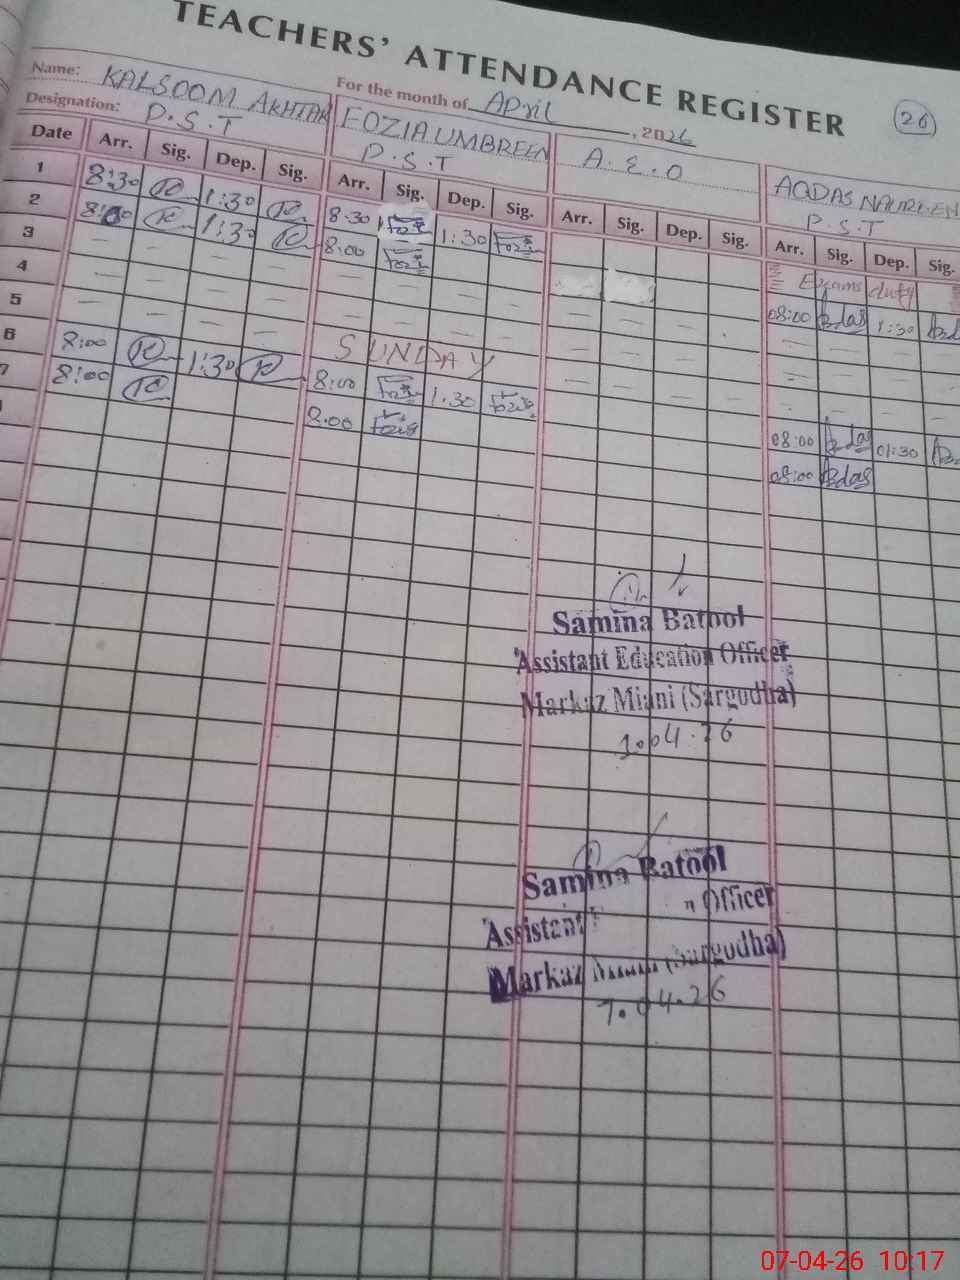 TEACHERS' ATTENDANCE REGISTER
26
Name: KALSOOM AKHTAR
For the month of April, 2026
Designation: P.S.T
FOZIA UMBREEN
P.S.T
A.E.O
AQDAS NAUREEN
P.S.T
Date Arr. Sig. Dep. Sig. Arr. Sig. Dep. Sig. Arr. Sig. Dep. Sig. Arr. Sig. Dep. Sig.
1 8:30 1:30 8.30 1:30 Exams duty
2 1:30 8:00 08:00 1:30
3 — — — —
4 — — — —
5 — — — — SUNDAY
6 8:00 1:30 8:00 1.30 08:00 01:30
7 8:00 8.00 08:00
Samina Batool
Assistant Education Officer
Markaz Miani (Sargodha)
1.04.26
Samina Batool
Assistant Officer
Markaz Miani (Sargodha)
7.04.26
07-04-26 10:17